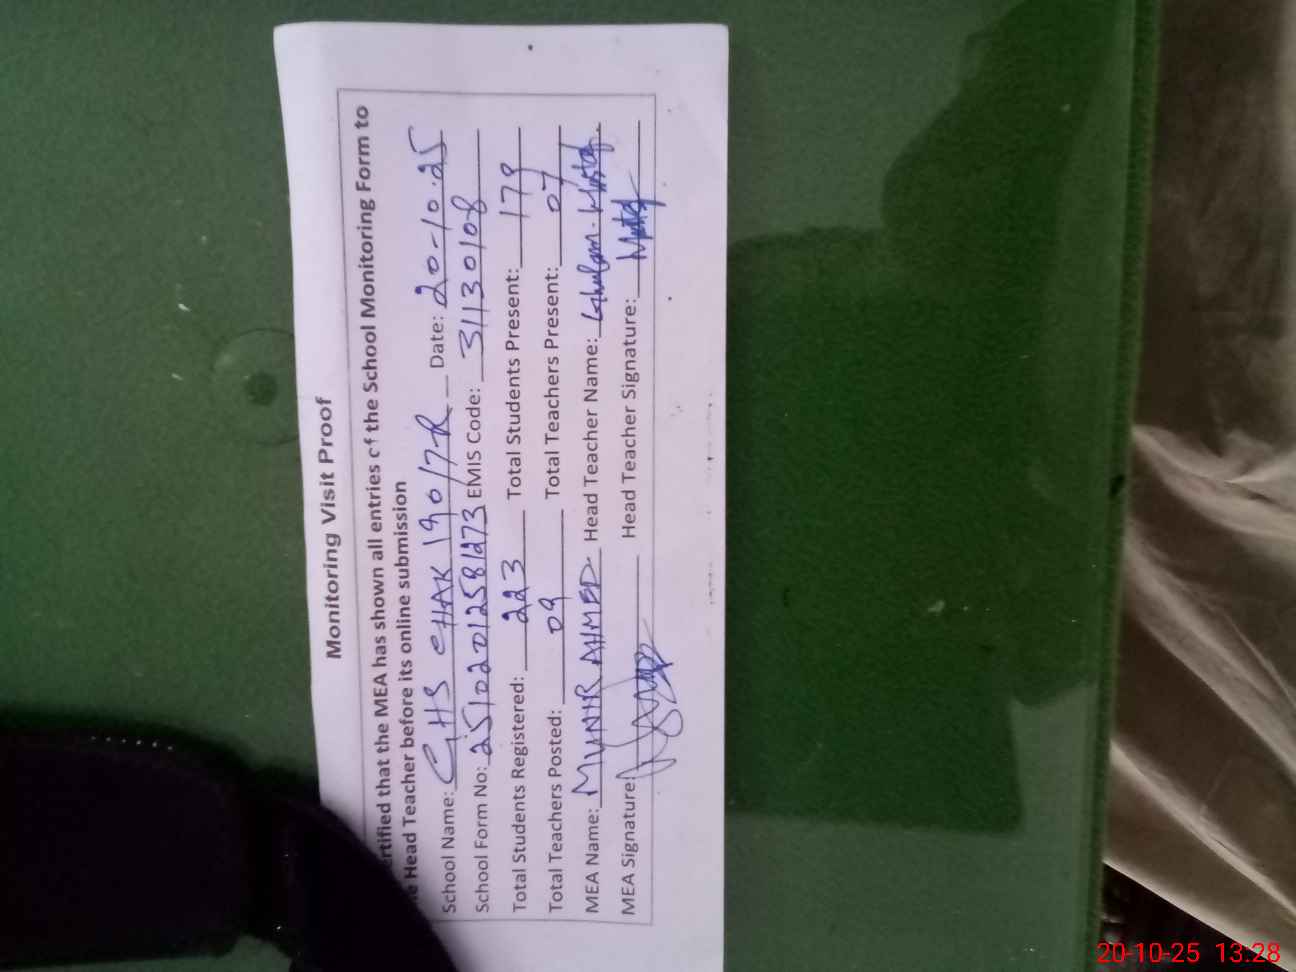 Monitoring Visit Proof
ertified that the MEA has shown all entries of the School Monitoring Form to
e Head Teacher before its online submission
School Name: GHS CHAK 190/7-R Date: 20-10-25
School Form No: 25102012581273 EMIS Code: 31130108
Total Students Registered: 223 Total Students Present: 179
Total Teachers Posted: 09 Total Teachers Present: 07
MEA Name: MUNIR AHMED Head Teacher Name: Ghulam
MEA Signature: Head Teacher Signature:
20-10-25 13:28